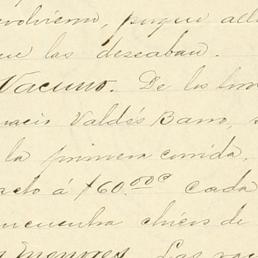 volvieron, porque all
que las deseaban.
Vacuno. De los
nacio Valdés Barro, s
la primera corrida.
acto á $60.00 cada
cuentra chicos de
Menores. Las vac